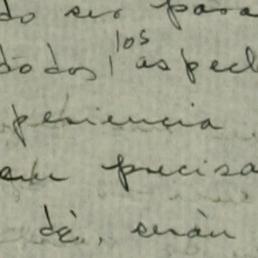 do ser para
dodos, los aspec
periencia
precisa
dè, seràn